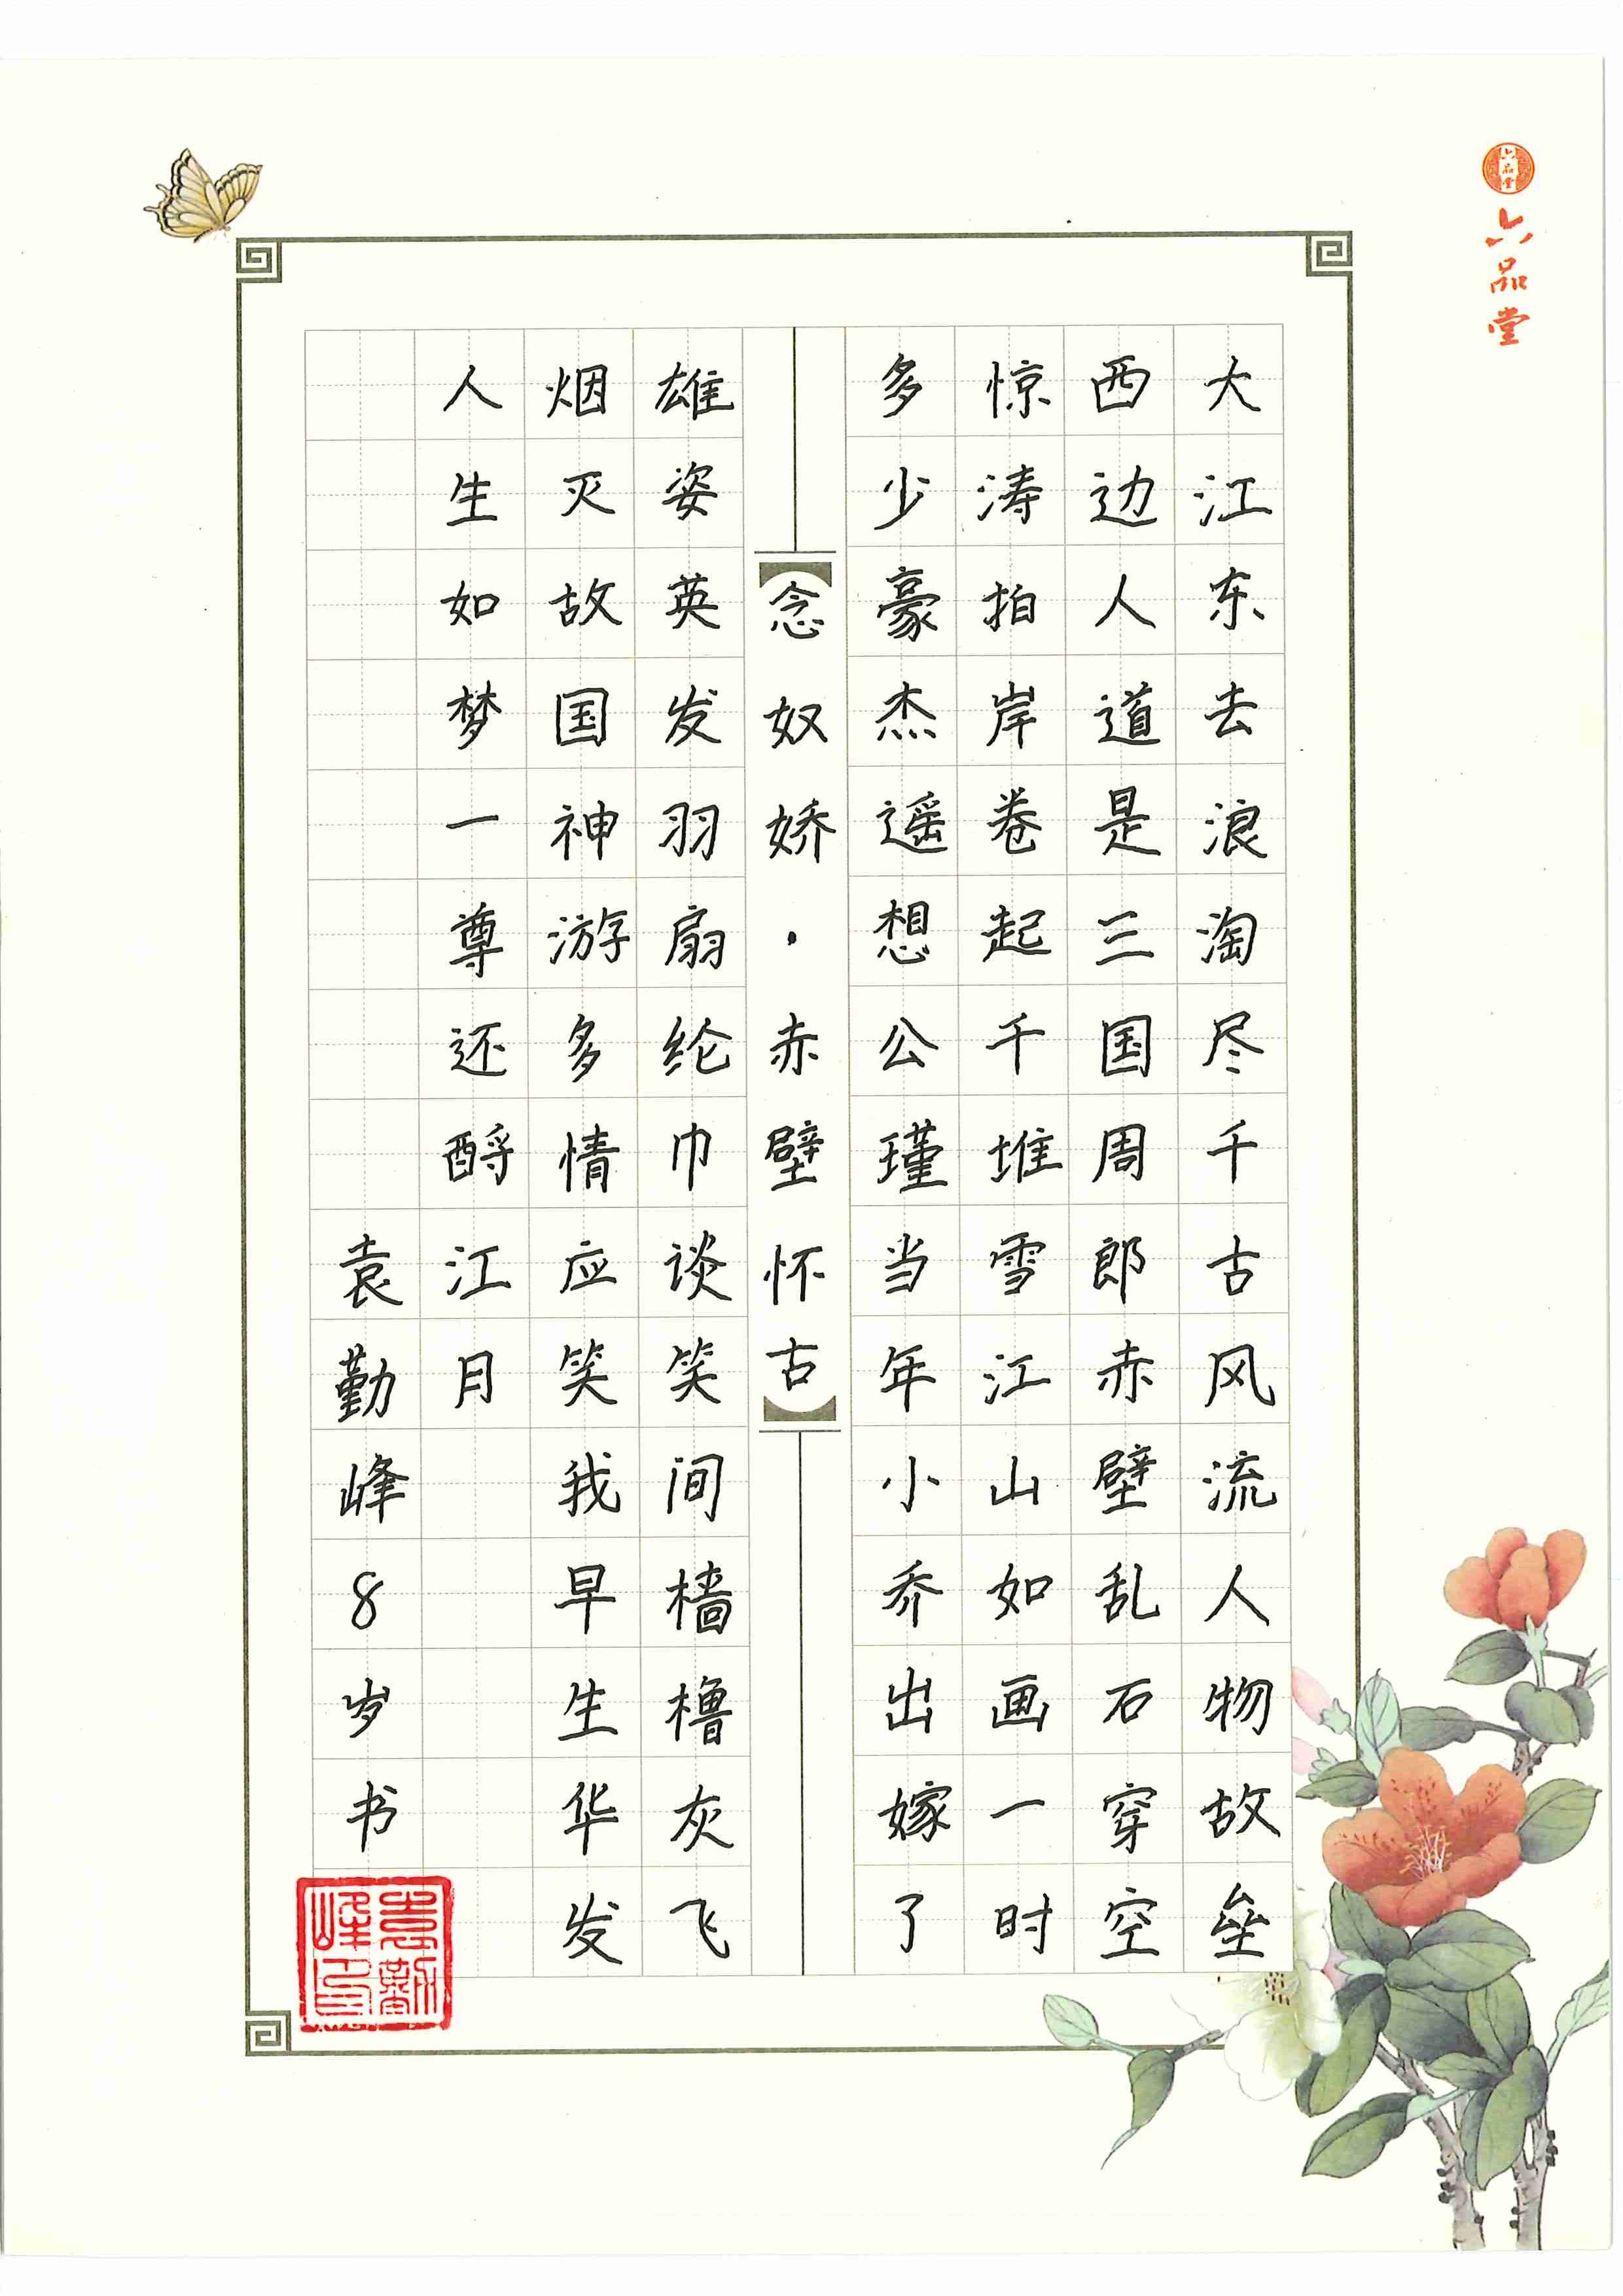 六品堂
六品堂
大江东去浪淘尽千古风流人物故垒
西边人道是三国周郎赤壁乱石穿空
惊涛拍岸卷起千堆雪江山如画一时
多少豪杰遥想公瑾当年小乔出嫁了
念奴娇·赤壁怀古
雄姿英发羽扇纶巾谈笑间樯橹灰飞
烟灭故国神游多情应笑我早生华发
人生如梦一尊还酹江月
袁勤峰8岁书
袁勤峰印